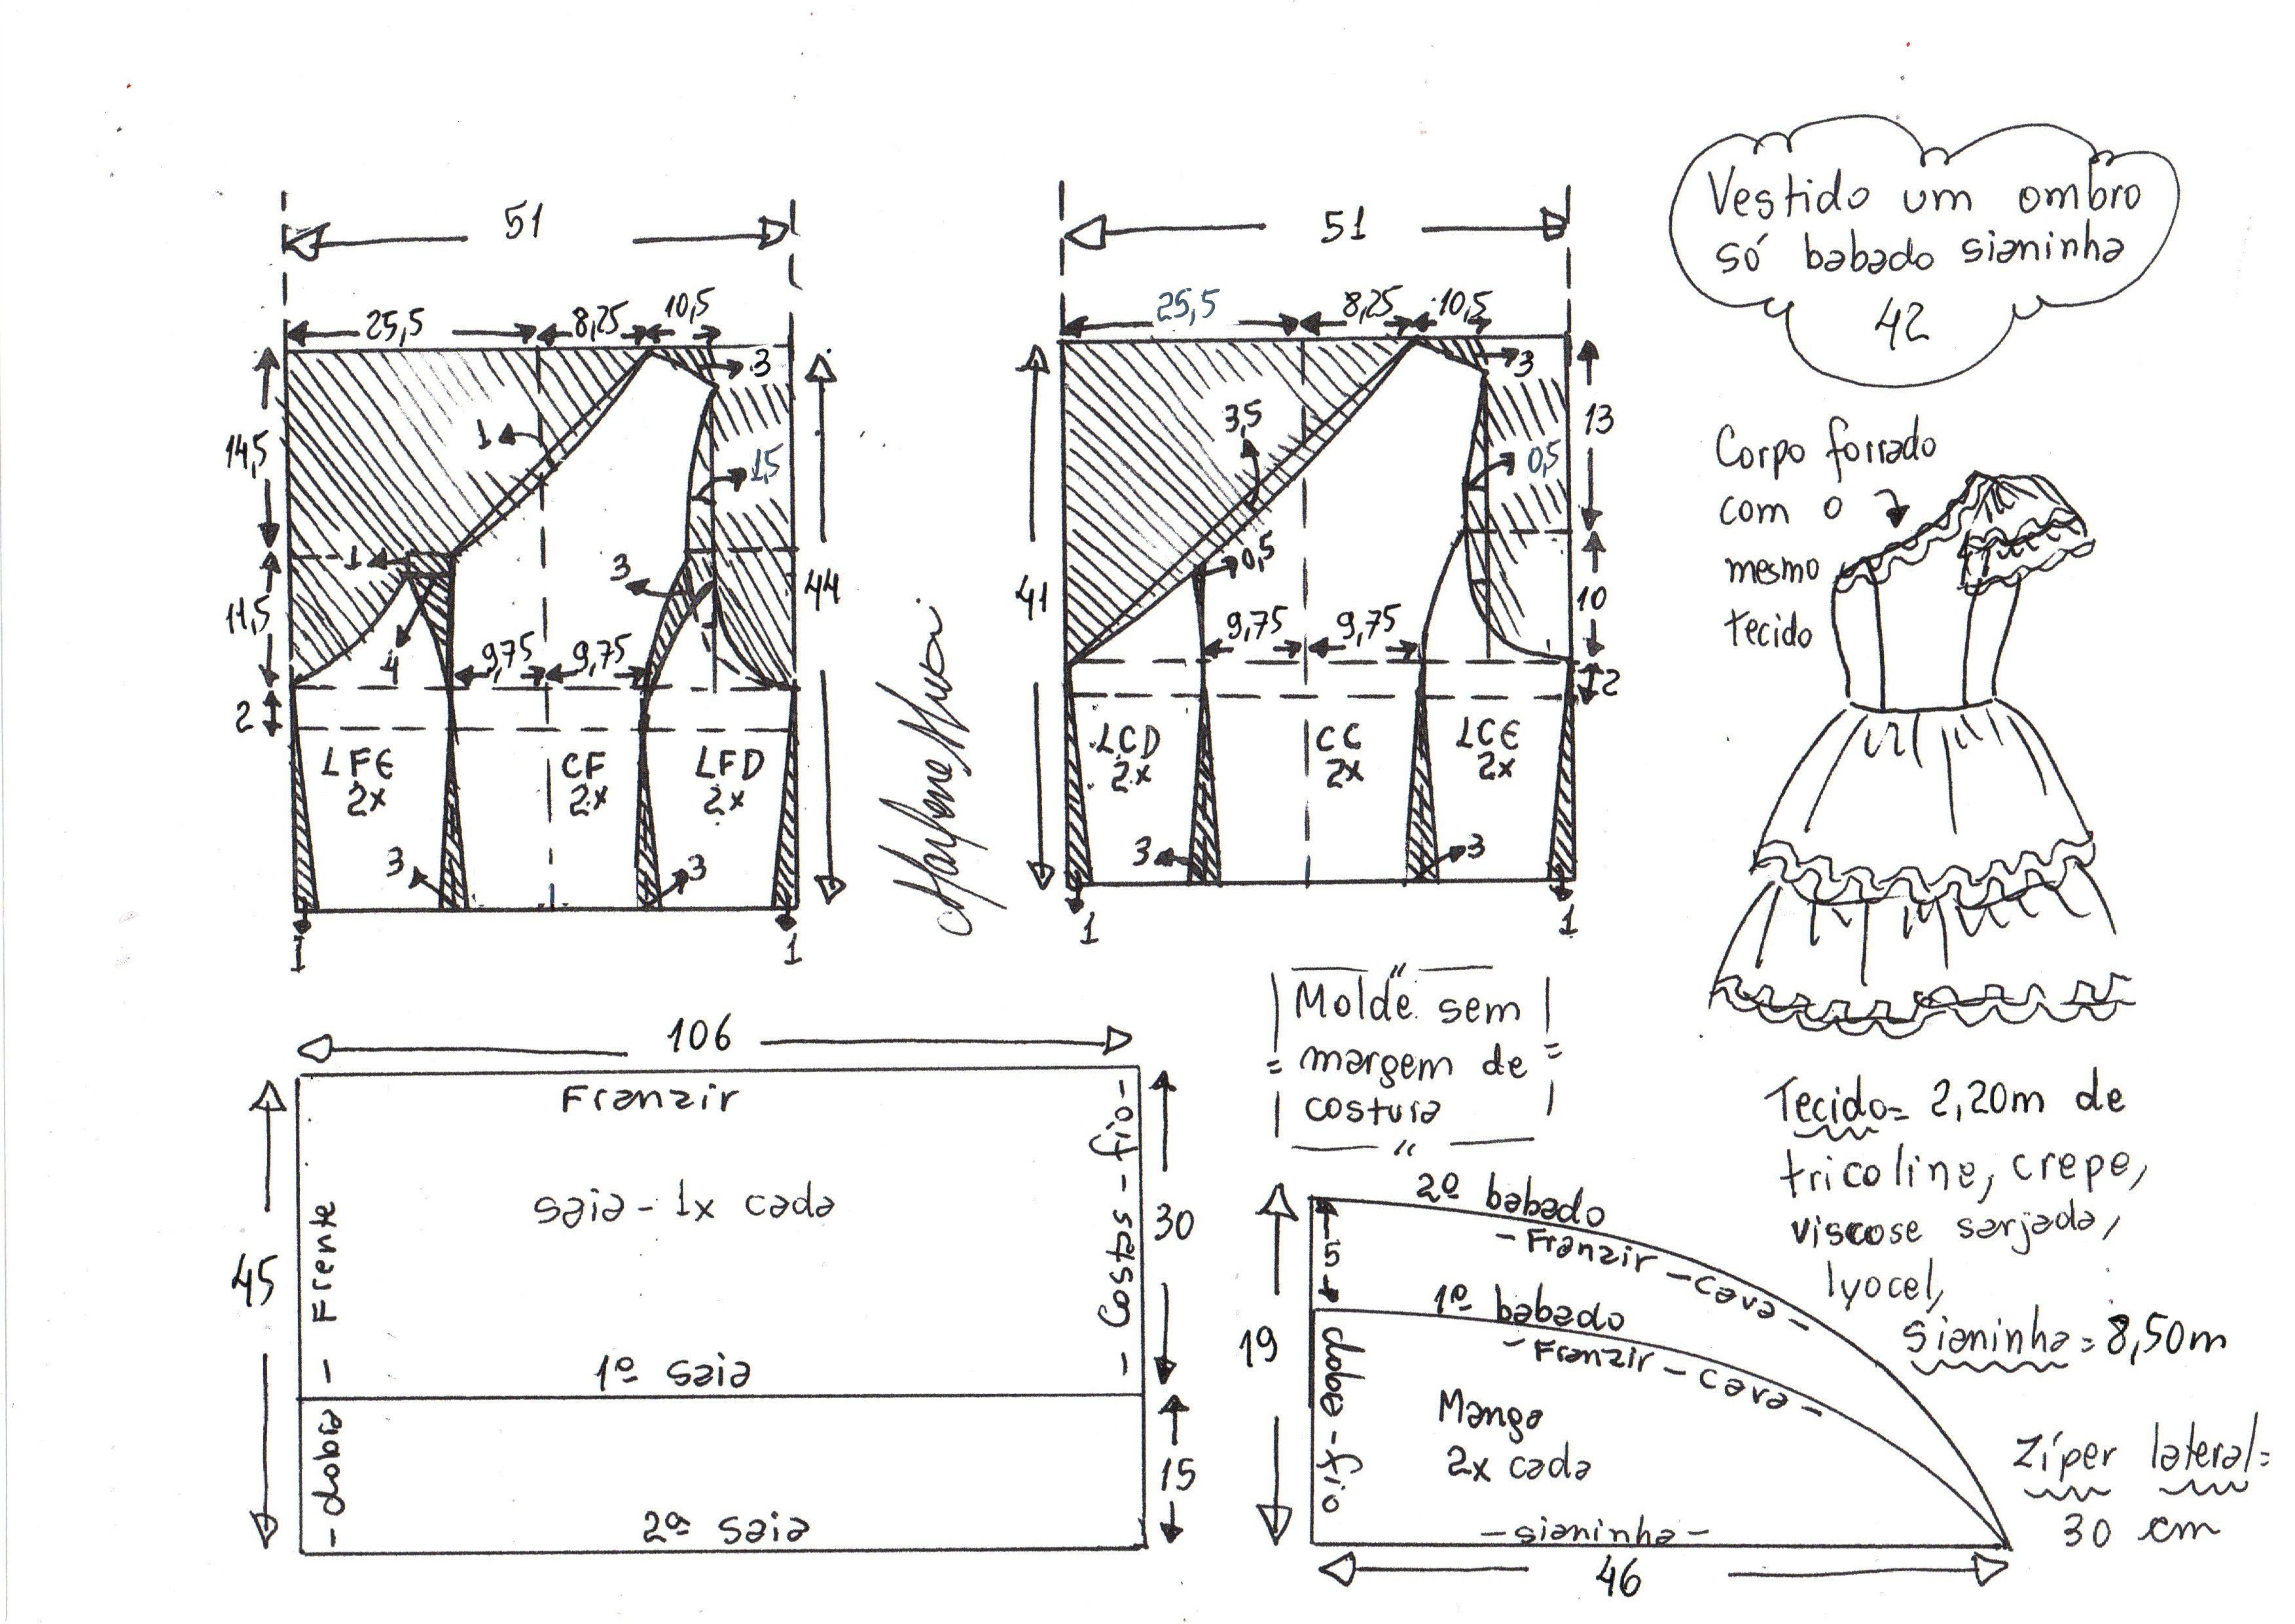 Vestido um ombro
só babado sianinha
42
51
25,5
8,25
10,5
3
14,5
1
1,5
1
3
11,5
44
4
9,75
9,75
2
LFE
2x
CF
2x
LFD
2x
3
3
1
1
51
25,5
8,25
10,5
3
3,5
13
0,5
0,5
41
10
9,75
9,75
2
LCD
2x
CC
2x
LCE
2x
3
3
1
1
Corpo forrado
com o
mesmo
tecido
Molde sem
margem de
costura
106
Franzir
saia - 1x cada
45
- dobra - Frente
- Costas - fio -
30
1ª saia
15
2ª saia
2º babado
- Franzir - cava -
5
1º babado
- Franzir - cava -
19
dobra - fio
Manga
2x cada
- sianinha -
46
Tecido = 2,20m de
tricoline, crepe,
viscose sarjada,
lyocel,
sianinha = 8,50m
Zíper lateral =
30 cm